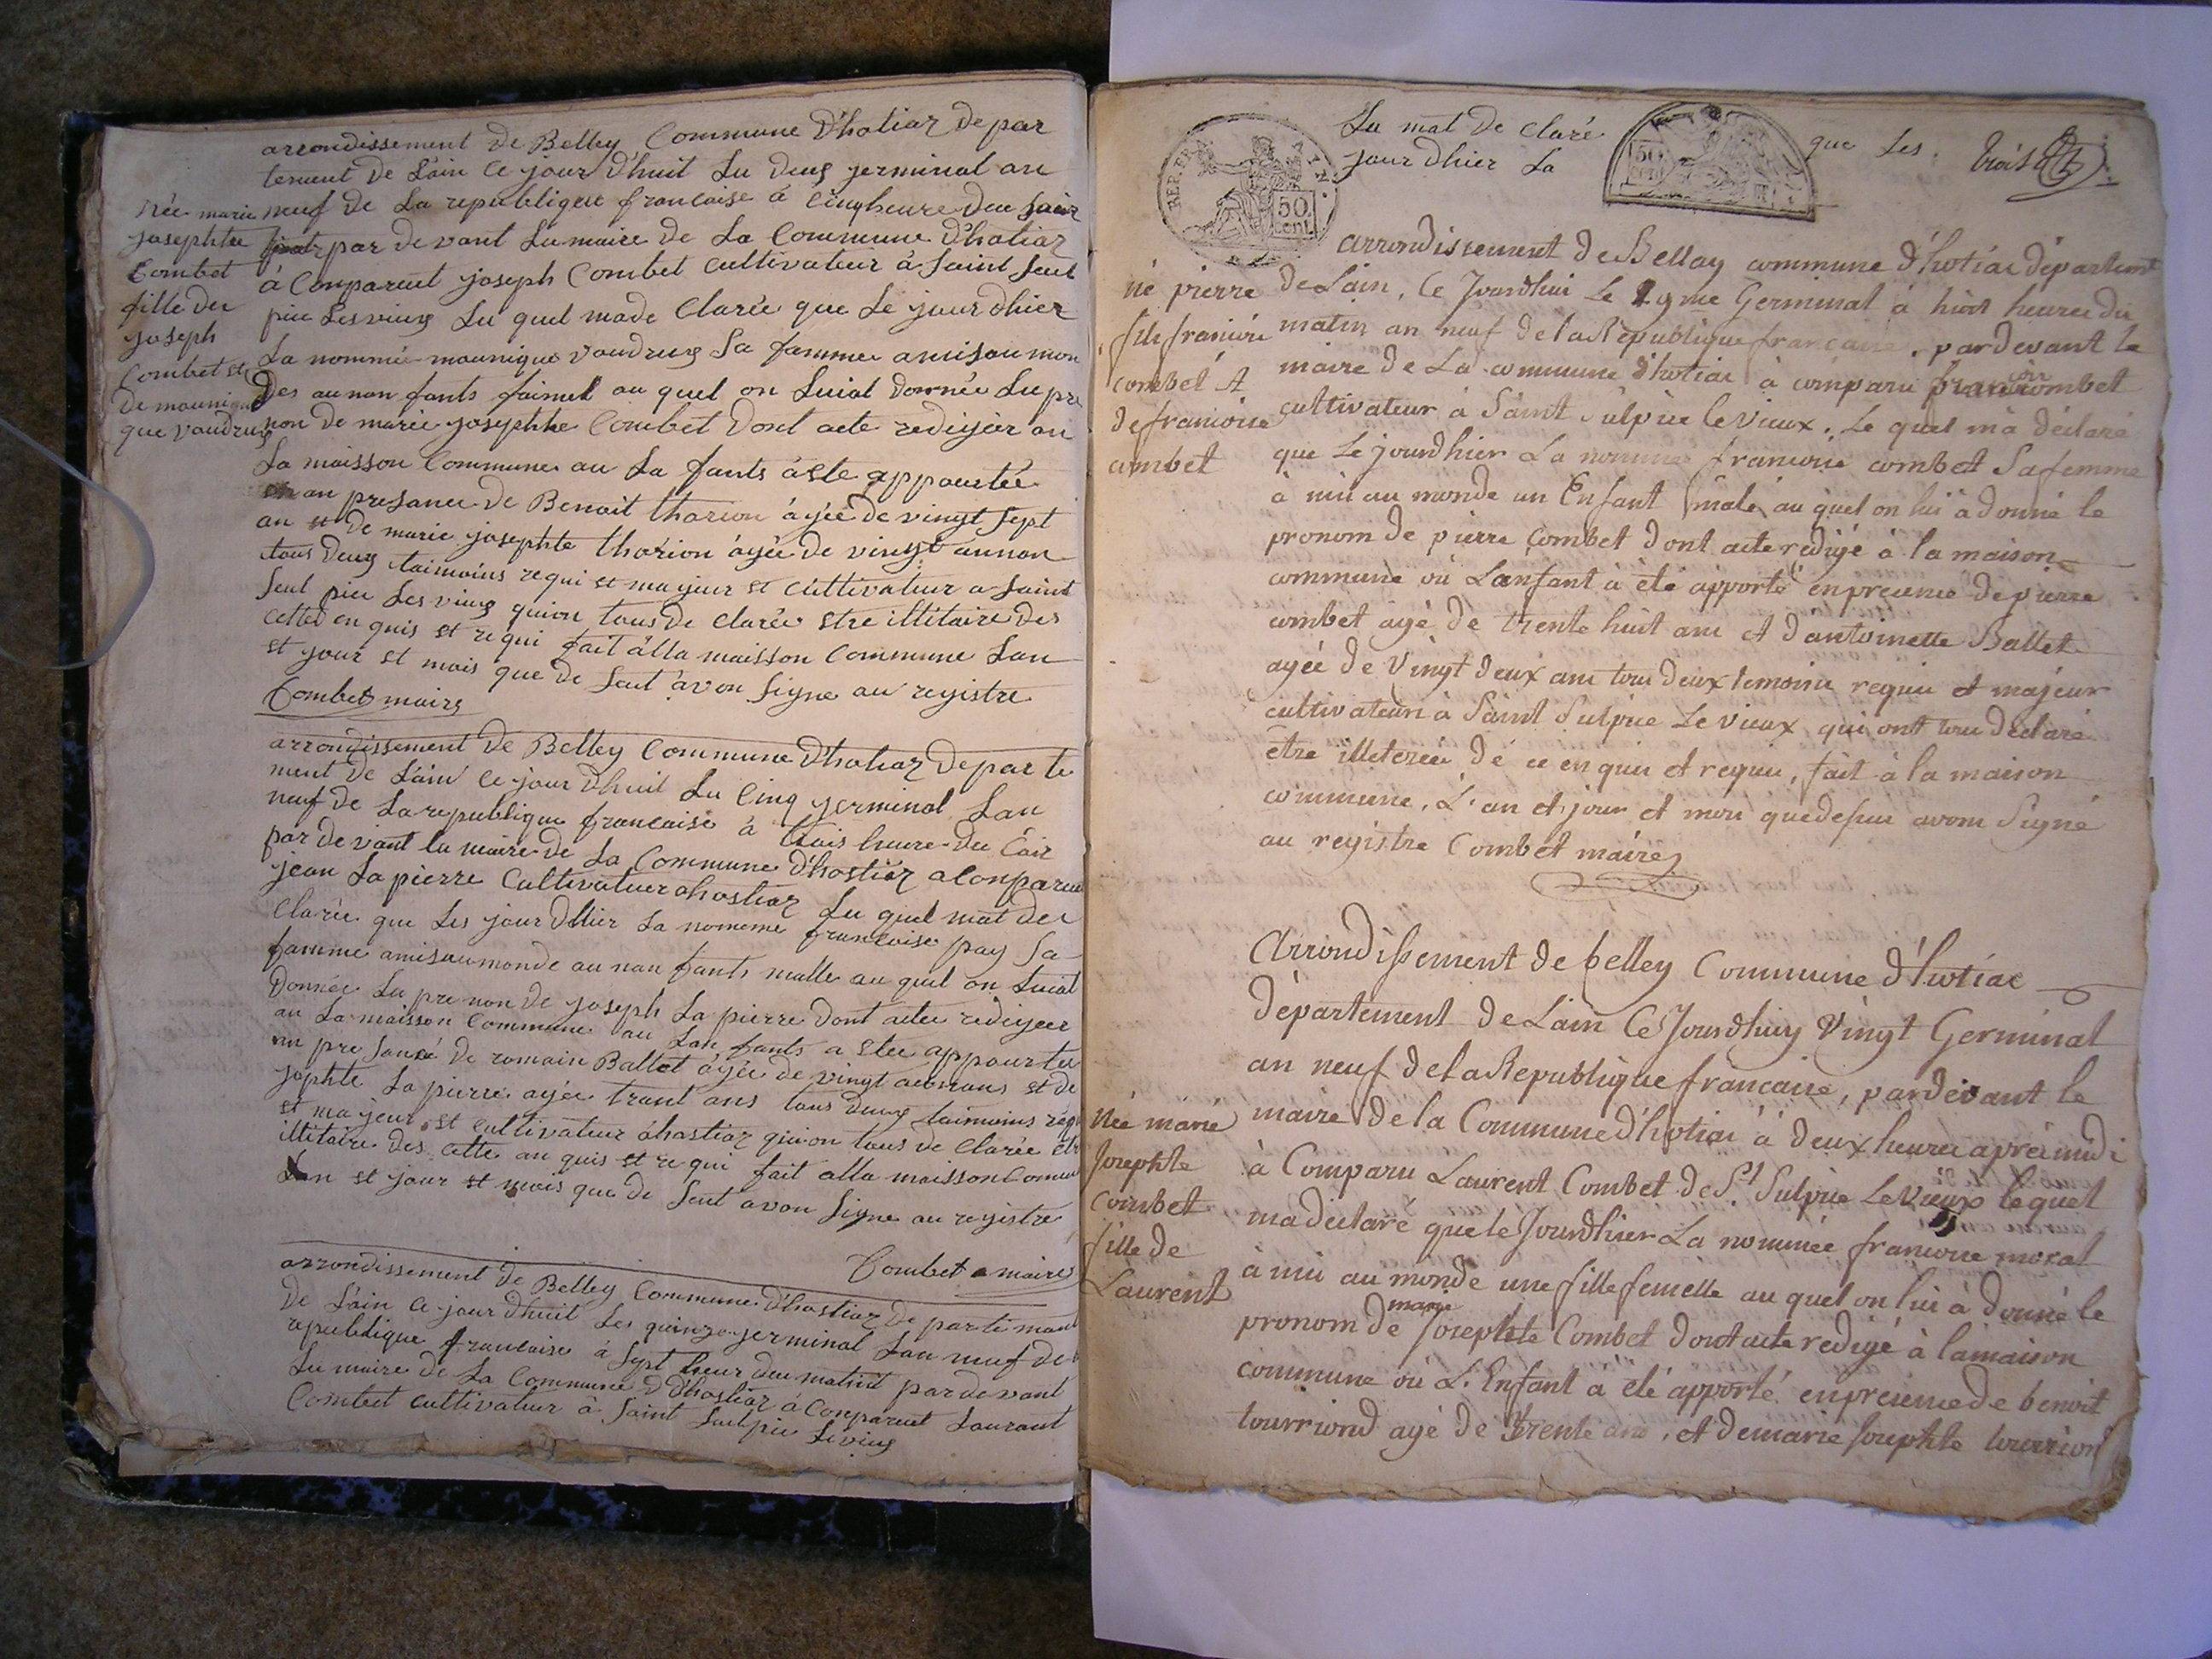 arrondissement de Belley Commune d'hotiaz depar
tement de L'ain ce jour d'huit Lu deux germinal an
neuf de La republique francaise à cinq heure deu soir
par devant Lu maire de La Commune d'hotiaz
à Conparuit joseph Combet cultivateur à Saint Seul
pice Les vieux Lu quel ma de Clarée que Le jour dhier
La nommée mounique vaudrux Sa famme a misau mon
des au nan fants faimel au quel on Luiat donnée Lu pre
non de marie josephte Combet dont acte redigier au
La maisson Commune au La fants à etee appourtée
an presance de Benoit thorion âgée de vingt sept
an et de marie josephte thorion âgée de vingt annan
tous deux taimoins requi et majeur et cultivateur a Saint
Seul pice Les vieux quion tous de clarée etre illitaire des
cette en quis et requi fait álla maisson Commune Lan
et jour et mois que de Seut avon Signe au registre
Combet maire
née marie
josephte
Combet
fille deu
joseph
Combet et
de mouniqu
que vaudrux
arrondissement de Belley Commune d'hotiaz departe
ment de L'ain ce jour d'huit Lu cinq germinal Lan
neuf de La republique francaise à trois heure deu Cair
par devant Lu maire de La Commune d'hostiaz a Conparue
jean Lapierre Cultivatuer ahostiaz Lu quel mat der
Clarée que Les jour dhier La nomeme francoise pay Sa
famme a misau monde au nan fants malle au quel on Luiat
donnée Lu pre non de joseph La pierre dont actee redigeer
au La maisson Commune au Lan fants a etee appourtee
an pre sance de romain Ballet âgée de vingt aunans et de
jophte La pierre agée trant ans tous deux taimoins requ
et majeur et cultivateur áhastiaz quion tous de Clarée etr
illitaire des cette an quis et re qui fait alla maisson Comun
Lan et jour et mois que de Seut avon Signe au registre
Combet maire
arrondissement de Belley Commune d'hastiaz departiman
de L'ain ce jour d'huit Les quinze germinal Lan neuf de
republique francaise à Sept heur deu matint par devant
Lu maire de La Commune d'hastiaz à Conparuet Laurant
Combet cultivateur à Saint Seulpice Levieux
Lu mat de claré que Les
jour dhier La
trois
REP. FRA.
50
cent.
50
cent
arrondissement de Bellay commune d'hotiac départemt
de Lain, Ce Jourdhui Le 19me Germinal à huit heures du
matin an neuf de la République francaise, pardevant le
maire de La commune d'hotiac à comparu francois combet
cultivateur à Saint Sulpice le vieux. Le quel m'à déclaré
que Le jourdhier La nommée francoise combet Sa femme
à mis au monde un Enfant mâle au quel on lui à donné le
pronom de pierre Combet dont acte redigé à la maison
commune où Lanfant à été apporté en presence de pierre
combet agé de trente huit ans et d'antoinette Ballet
agée de Vingt deux ans tous deux temoins requis et majeur
cultivateurs à Saint Sulpice Le vieux qui ont tous déclaré
être illeterée dé ce en quis et requis, fait à la maison
commune, L'an et jour et mois que dessus avons Signé
au registre Combet maire
né pierre
fils francois
combet et
de francoise
combet
Arrondissement de belley Commune d'hotiac
département de Lain Ce Jourdhuy Vingt Germinal
an neuf de la République francaise, pardevant le
maire de la Commune d'hotiac à deux heures après midi
à Comparu Laurent Combet de St Sulpice Le Vieux lequel
ma declaré que le Jourdhier La nommée francoise moral
à mis au monde une fille femelle au quel on lui à donné le
marie
pronom de Josephte Combet dont acte redigé à la maison
commune où L'Enfant a été apporté en presence de benoit
tourriond agé de trente ans, et de marie Josephte tourrion
Née marie
Josephte
combet
fille de
Laurent